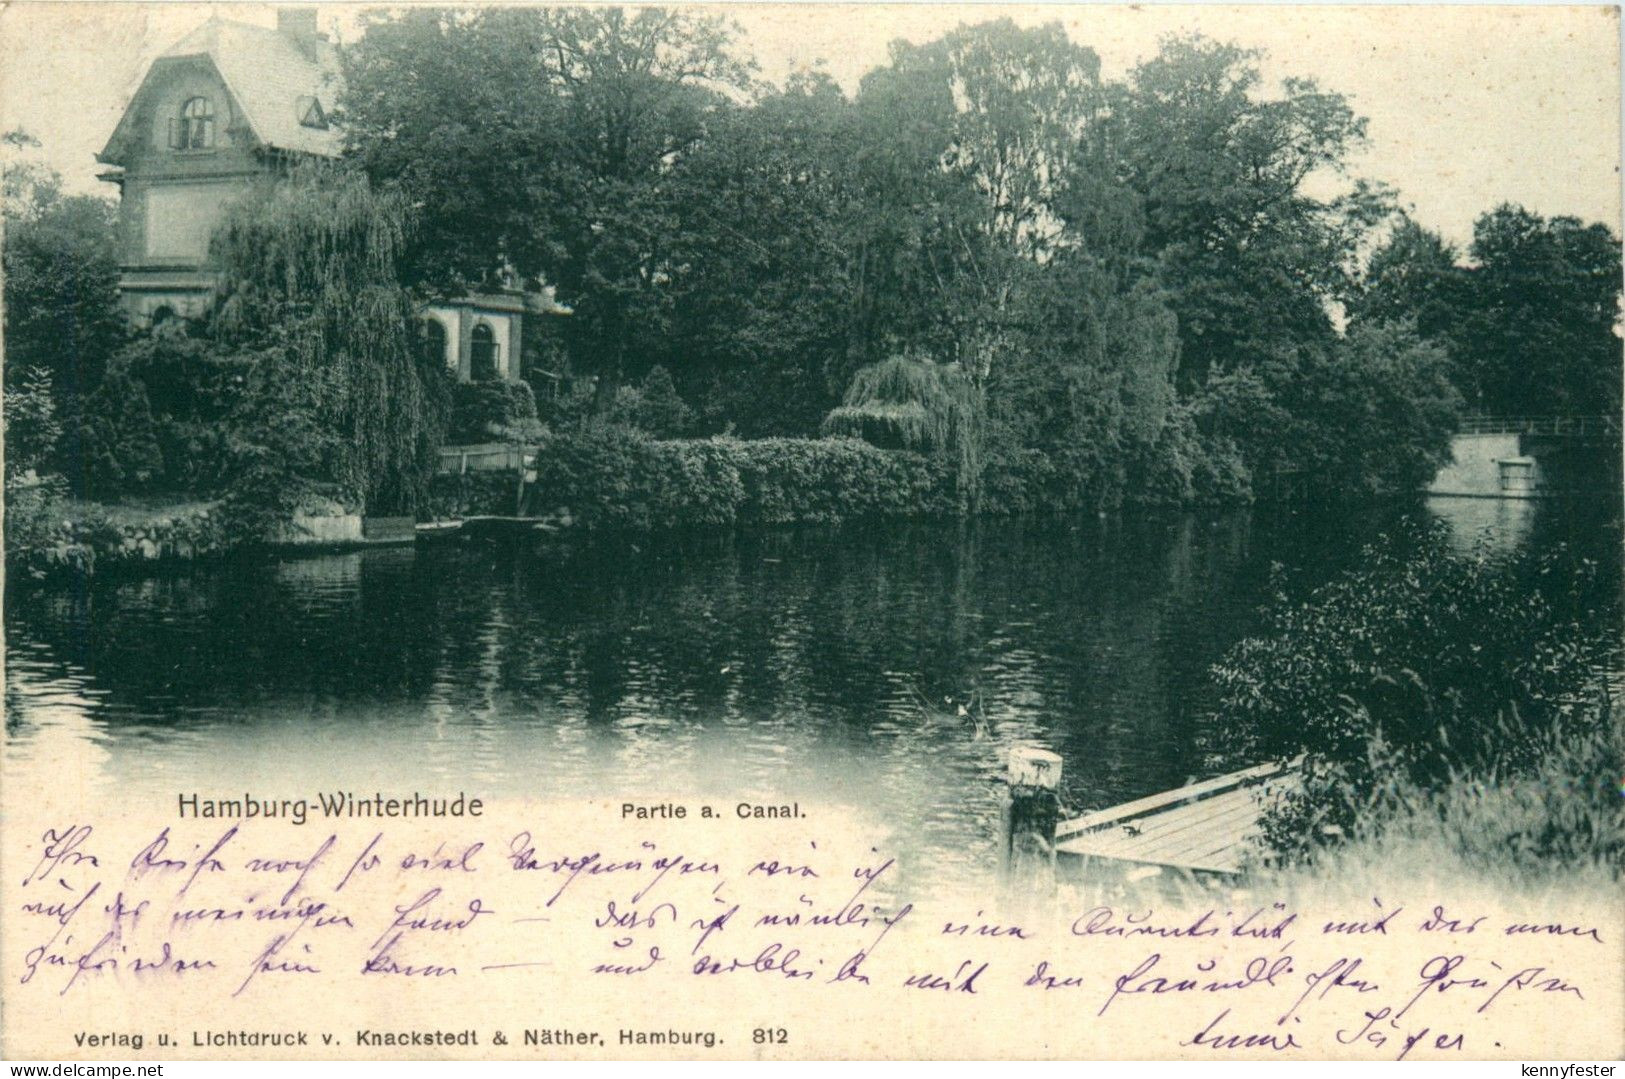 Hamburg-Winterhude Partie a. Canal.
Ihre Reise noch so viel Vergnügen, wie ich
auf der meinigen fand — das ist nämlich eine Quantität, mit der man
zufrieden sein kann — und verbleibe mit den freundlichsten Grüßen
Annie Jäger.
Verlag u. Lichtdruck v. Knackstedt & Näther, Hamburg. 812
Click to enlarge
kennyfester